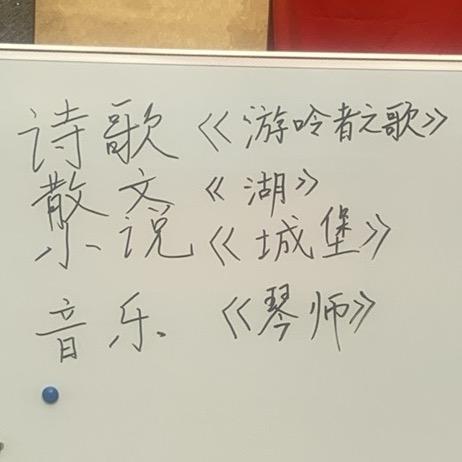 诗歌《游吟者之歌》
散文《湖》
小说《城堡》
音乐《琴师》